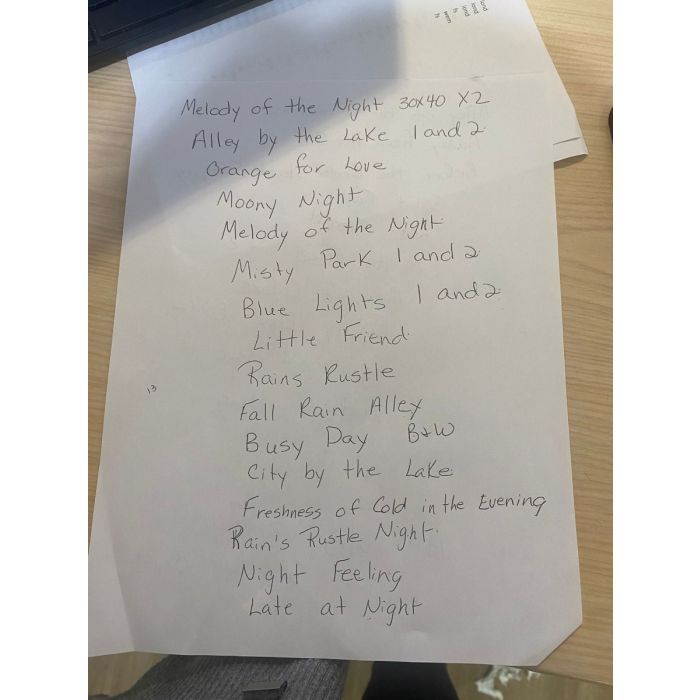 Melody of the Night 30x40 x2
Alley by the Lake 1 and 2
Orange for Love
Moony Night
Melody of the Night
Misty Park 1 and 2
Blue Lights 1 and 2
Little Friend
Rains Rustle
13
Fall Rain Alley
Busy Day B+W
City by the Lake
Freshness of Cold in the Evening
Rain's Rustle Night.
Night Feeling
Late at Night